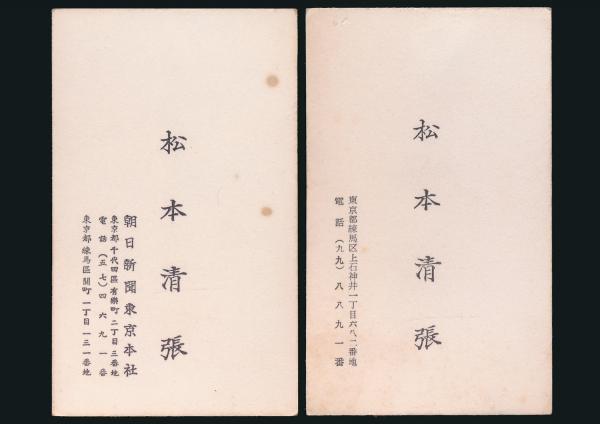 松本清張
東京都練馬区上石神井一丁目六八二番地
電話(九九)八八九一番
松本清張
朝日新聞東京本社
東京都千代田區有樂町二丁目三番地
電話(五七)四六九一番
東京都練馬區關町一丁目一三一番地